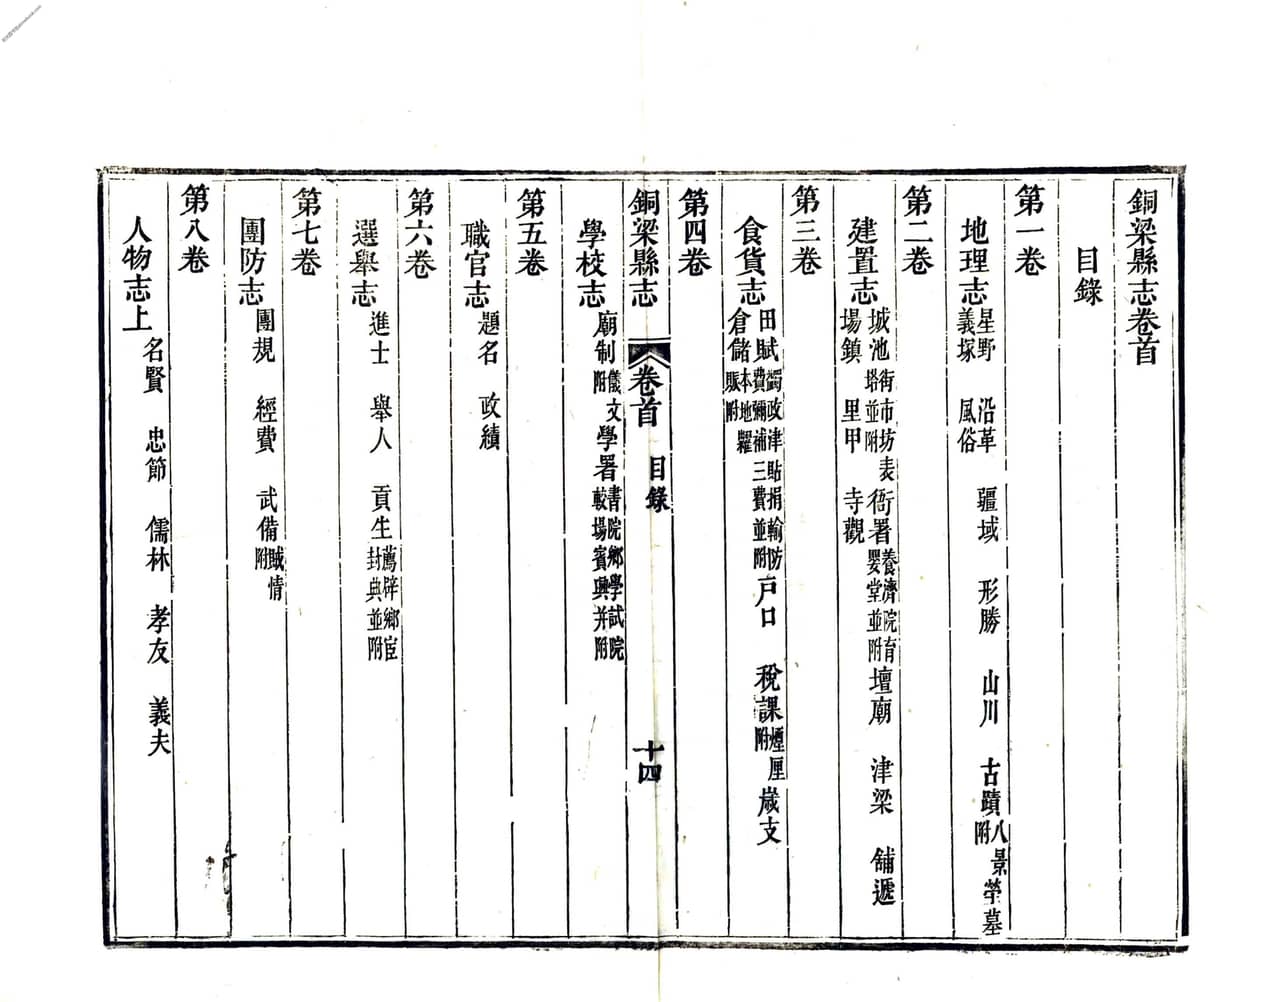 銅梁縣志卷首
目錄
第一卷
地理志 星野 沿革 疆域 形勝 山川 古蹟 八景附 塋墓
義塚 風俗
第二卷
建置志 城池 街市坊表塔並附 衙署 養濟院育嬰堂並附 壇廟 津梁 舖遞
場鎮 里甲 寺觀
第三卷
食貨志 田賦 蠲政津貼捐輸防費彌補三費並附 戶口 稅課 煙厘附 歲支
倉儲 本地糶賑附
第四卷
銅梁縣志 卷首 目錄 十四
學校志 廟制 儀文附 學署 書院鄉學試院較場賓興并附
第五卷
職官志 題名 政績
第六卷
選舉志 進士 舉人 貢生 薦辟鄉宦封典並附
第七卷
團防志 團規 經費 武備 賊情附
第八卷
人物志上 名賢 忠節 儒林 孝友 義夫